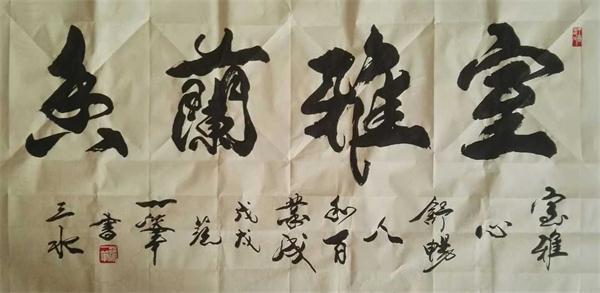 室雅蘭香
室雅
心
舒暢
人
和百
業成
戊戌
書
三水